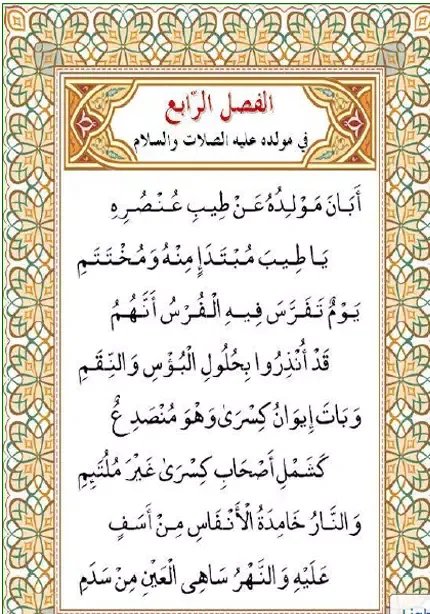 الفصل الرّابع
في مولده عليه الصلات والسلام
أَبَانَ مَوْلِدُهُ عَنْ طِيبِ عُنْصُرِهِ
يَا طِيبَ مُبْتَدَإٍ مِنْهُ وَمُخْتَتَمِ
يَوْمٌ تَفَرَّسَ فِيهِ الْفُرْسُ أَنَّهُمُ
قَدْ أُنْذِرُوا بِحُلُولِ الْبُؤْسِ وَالنِّقَمِ
وَبَاتَ إِيوَانُ كِسْرَىٰ وَهْوَ مُنْصَدِعٌ
كَشَمْلِ أَصْحَابِ كِسْرَىٰ غَيْرَ مُلْتَئِمِ
وَالنَّارُ خَامِدَةُ الْأَنْفَاسِ مِنْ أَسَفٍ
عَلَيْهِ وَالنَّهْرُ سَاهِى الْعَيْنِ مِنْ سَدَمِ